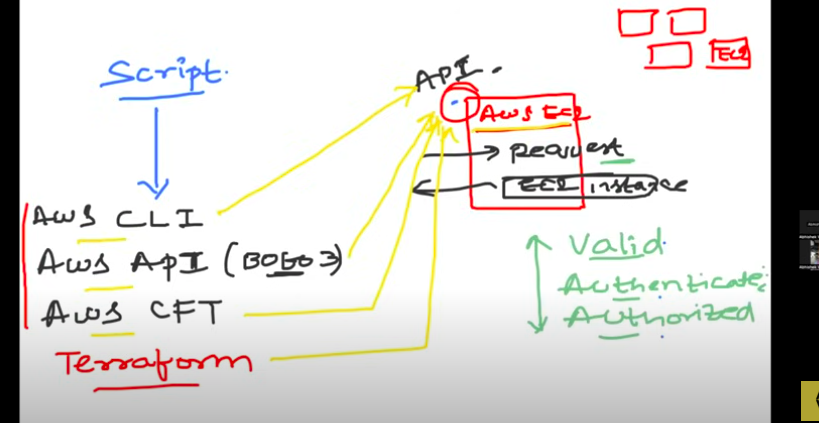 Script.
AWS CLI
AWS API (BOTO3)
AWS CFT
Terraform
API.
AWS EC2
request
EC2 instance
Valid
Authenticate
Authorized
EC2